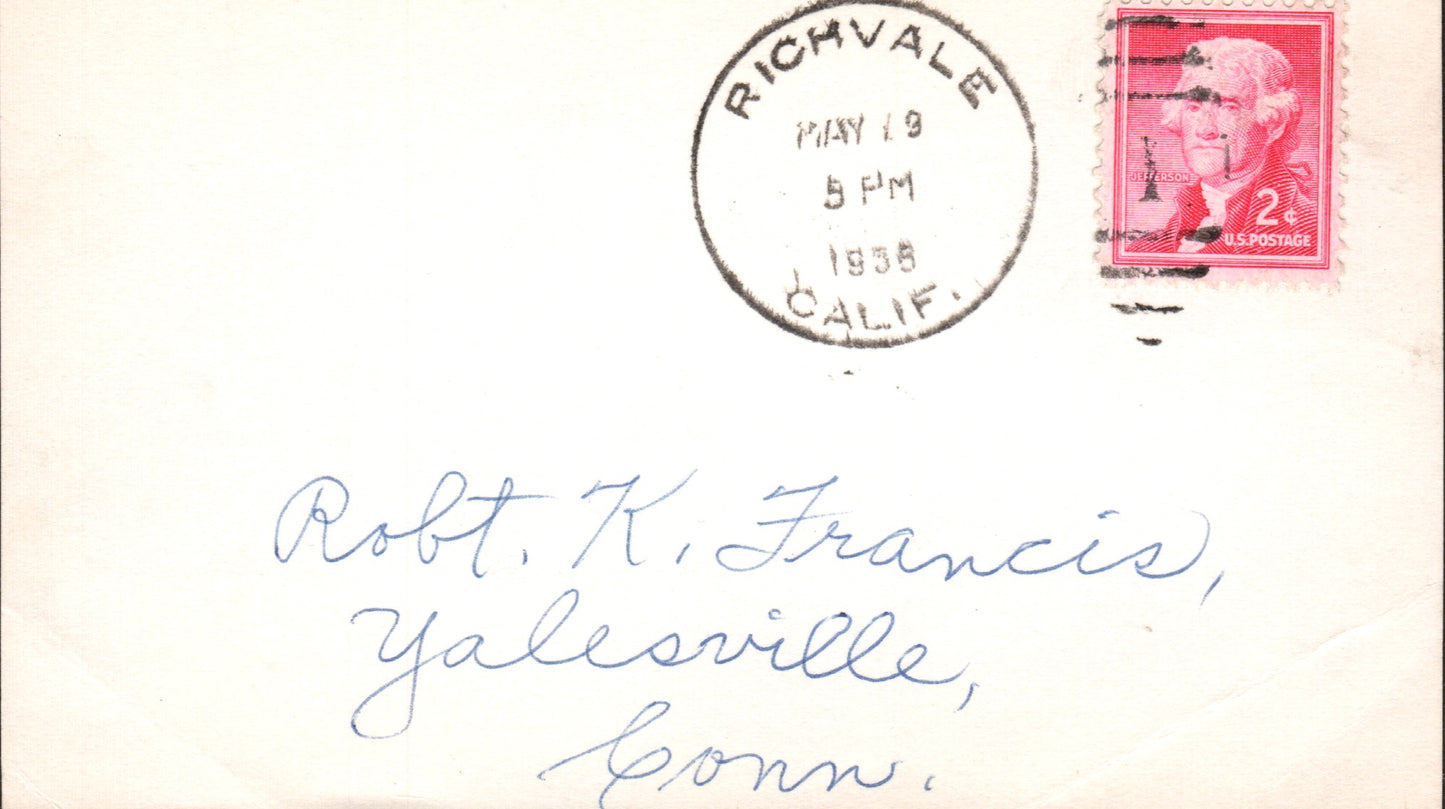 RICHVALE
MAY 19
5 PM
CALIF.
JEFFERSON
2¢
U.S. POSTAGE
Robt. K. Francis,
Yalesville,
Conn.